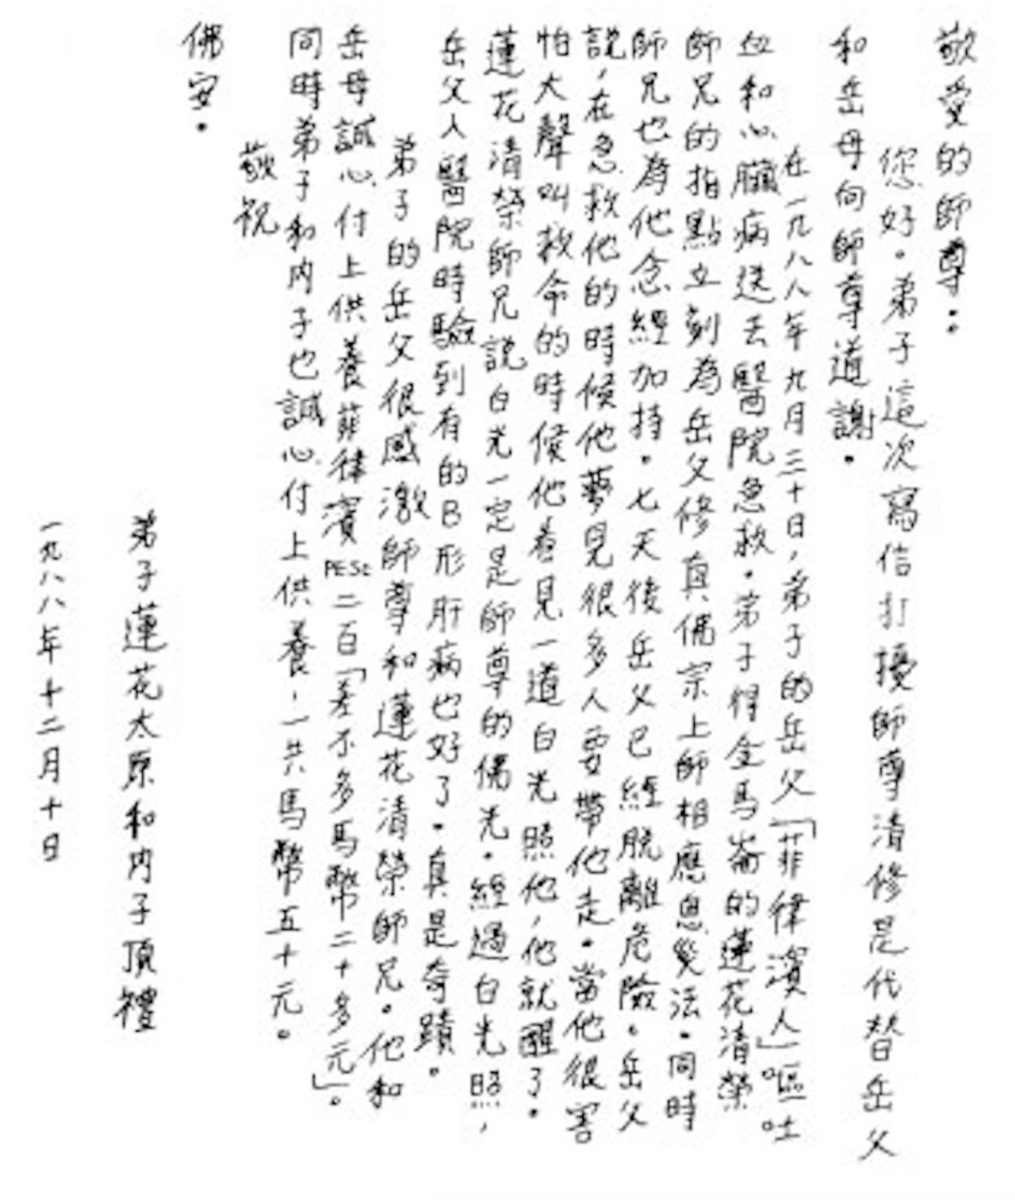 敬愛的師尊：
您好。弟子這次寫信打擾師尊清修是代替岳父
和岳母向師尊道謝。
在一九八八年九月三十日，弟子的岳父「菲律濱人」嘔吐
血和心臟病送去醫院急救。弟子得金馬崙的蓮花清榮
師兄的指點立刻為岳父修真佛宗上師相應息災法。同時
師兄也為他念經加持。七天後岳父已經脫離危險。岳父
說，在急救他的時候他夢見很多人要帶他走。當他很害
怕大聲叫救命的時候他看見一道白光照他，他就醒了。
蓮花清榮師兄說白光一定是師尊的佛光。經過白光照，
岳父入醫院時驗到有的B形肝病也好了。真是奇蹟。
弟子的岳父很感激師尊和蓮花清榮師兄。他和
岳母誠心付上供養菲律濱PESO二百「差不多馬幣二十多元」。
同時弟子和內子也誠心付上供養，一共馬幣五十元。
敬祝
佛安。
弟子蓮花太原和內子頂禮
一九八八年十二月十日